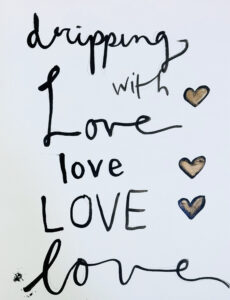 dripping
with
Love
love
LOVE
love